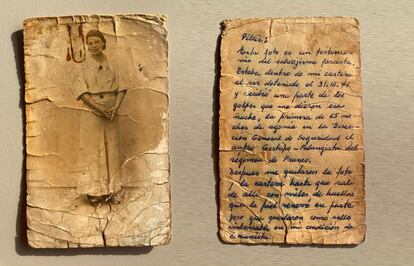 Pilar:
Esta foto es un testimonio
nio del salvajismo fascista.
Estaba dentro de mi cartera
al ser detenido el 31.10.41
y recibió una parte de los
golpes que me dieron esa
noche, la primera de 65 no
ches de agonía en la Direc
ción General de Seguridad el
antro Gestapo-Falangista del
régimen de Franco.
Después me quitaron la foto
y la cartera hasta que salí
de allí con miles de huellas
que la piel renovó en parte
pero que quedaron como sello
imborrable en mi condición de
comunista.